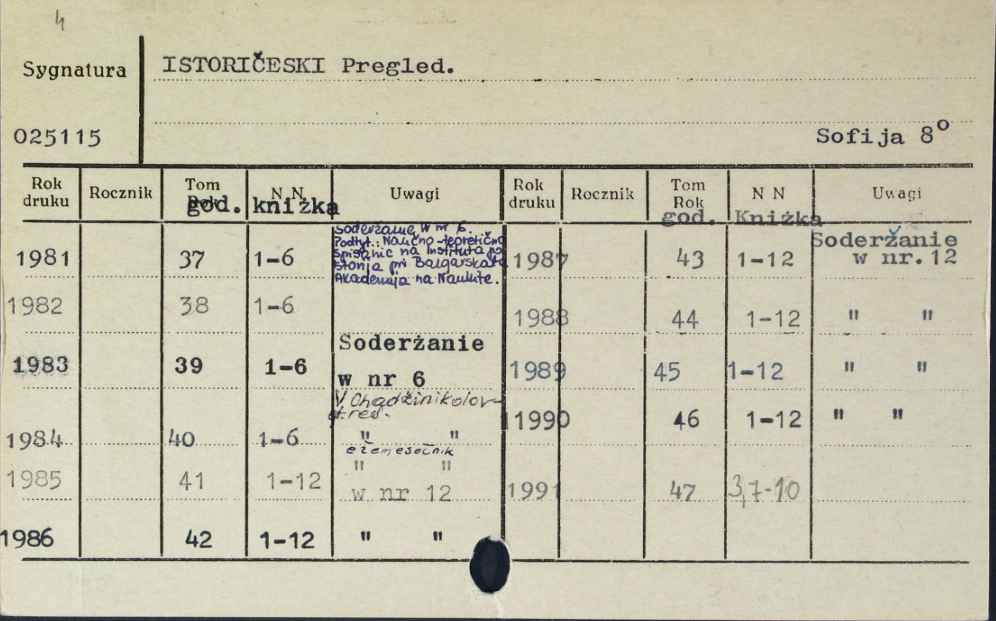 4
Sygnatura ISTORIČESKI Pregled.
025115 Sofija 8°
Rok druku Rocznik Tom Rok god. N N kniżka Uwagi Rok druku Rocznik Tom Rok god. N N Kniżka Uwagi
1981 37 1-6 Soderżanie w nr 6.
Podtyt.: Naučno-teoretično
spisanie na Instituta po
istorija pri Bălgarskata
Akademija na Naukite.
1982 38 1-6
1983 39 1-6 Soderżanie
w nr 6
V. Chadżinikolov-
gł. red.
1984 40 1-6 " "
eżemesečnik
" "
1985 41 1-12 w nr 12
1986 42 1-12 " "
1987 43 1-12 Soderžanie
w nr. 12
1988 44 1-12 " "
1989 45 1-12 " "
1990 46 1-12 " "
1991 47 3,7-10